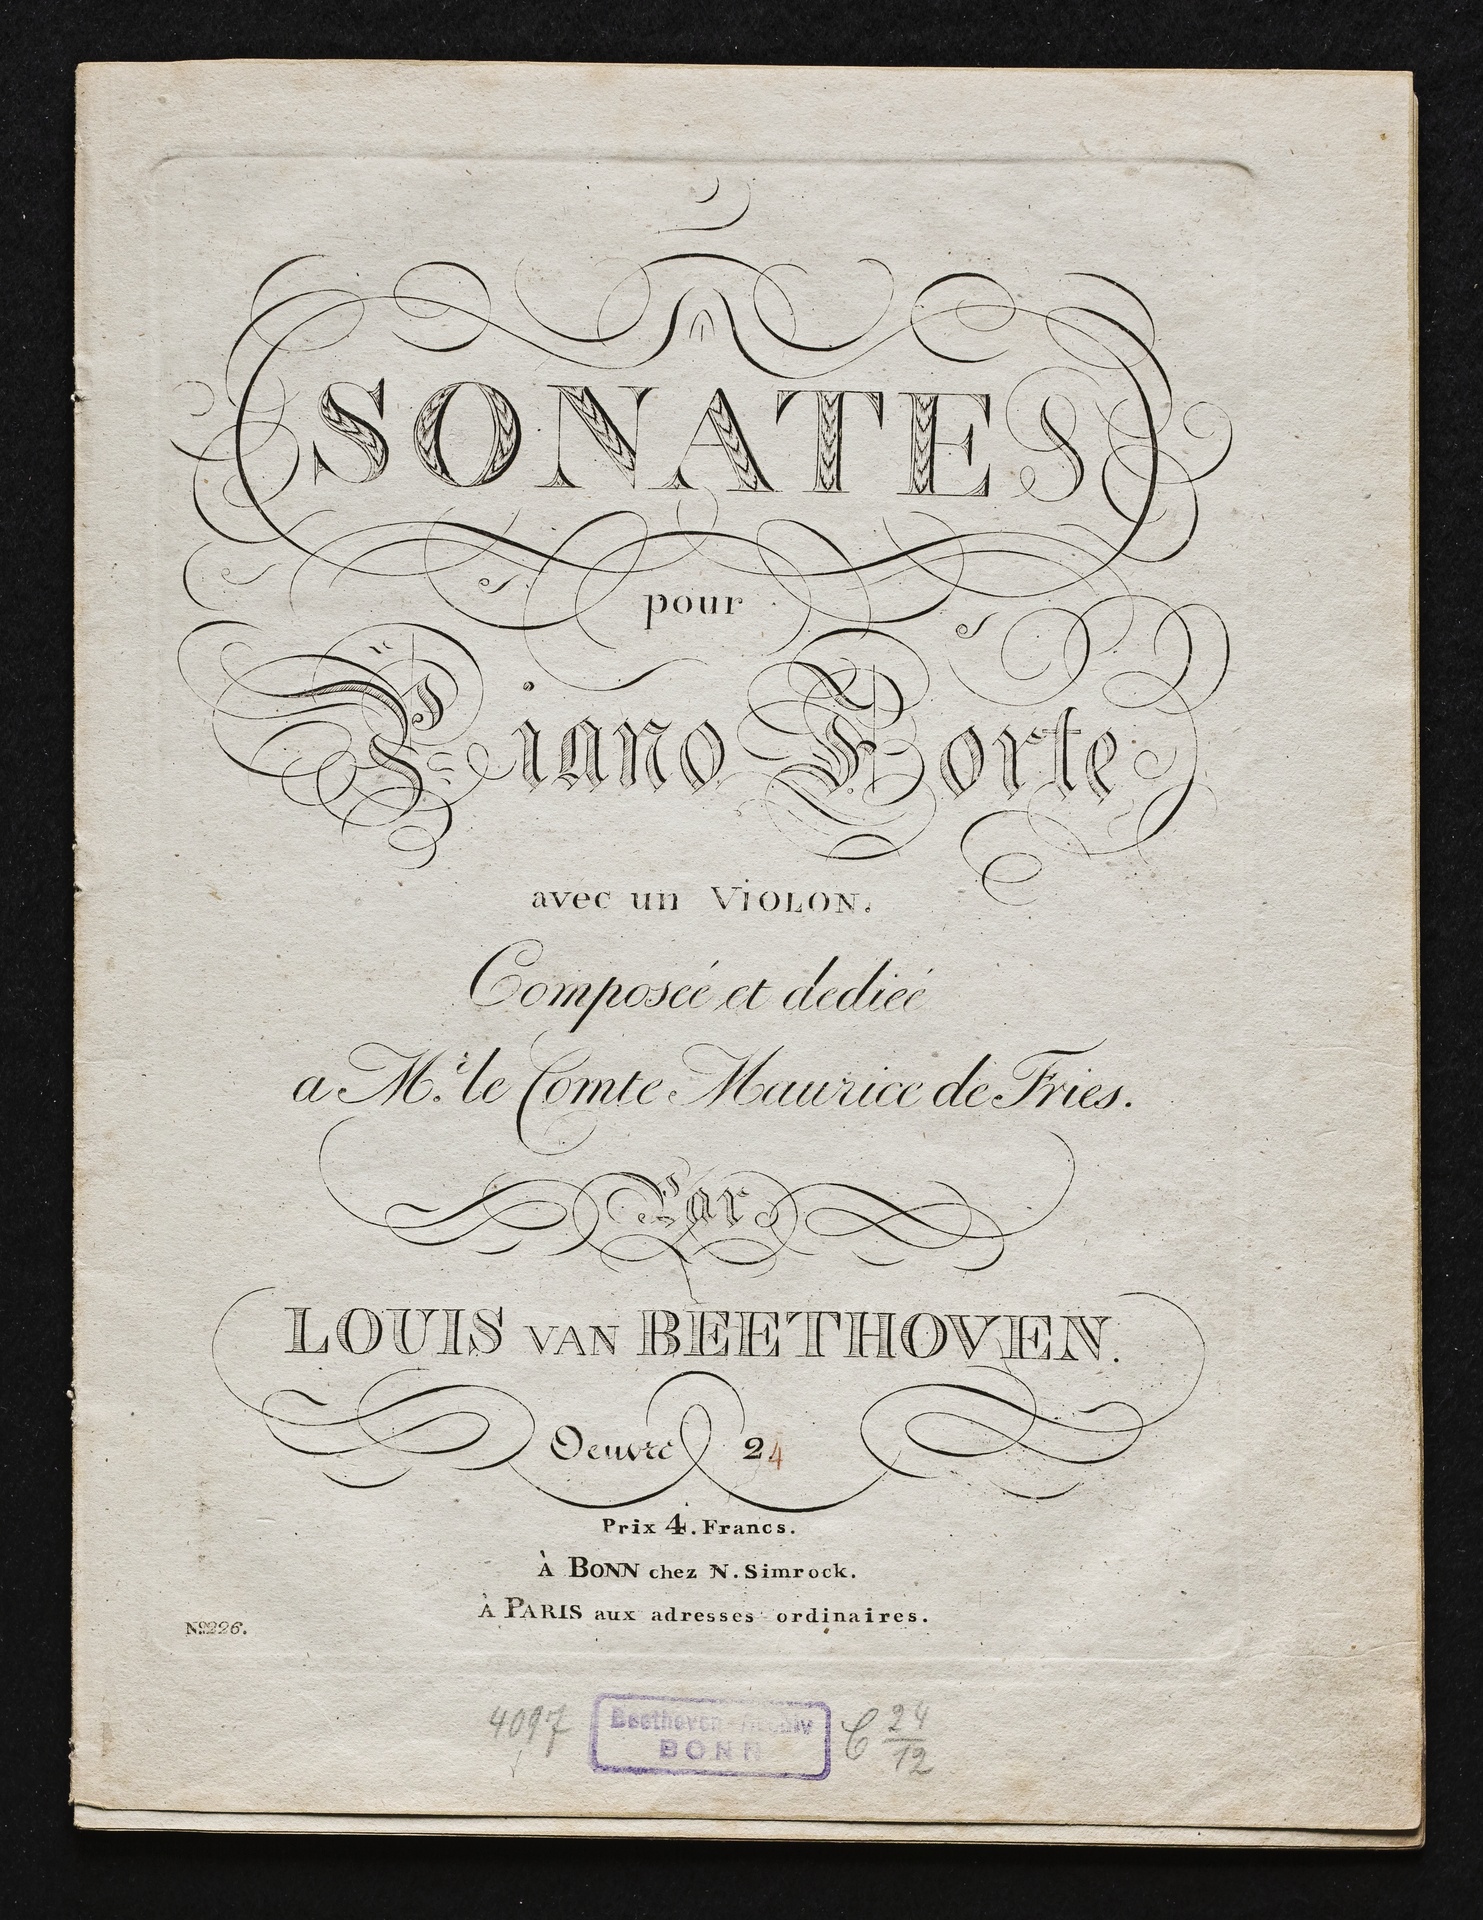 SONATE
pour
Piano Forte
avec un VIOLON.
Composée et dediée
a M.r le Comte Maurice de Fries.
Par
LOUIS VAN BEETHOVEN.
Oeuvre 24
Prix 4. Francs.
À BONN chez N. Simrock.
À PARIS aux adresses ordinaires.
No. 226.
4097
Beethoven-Archiv
BONN
C 24/12